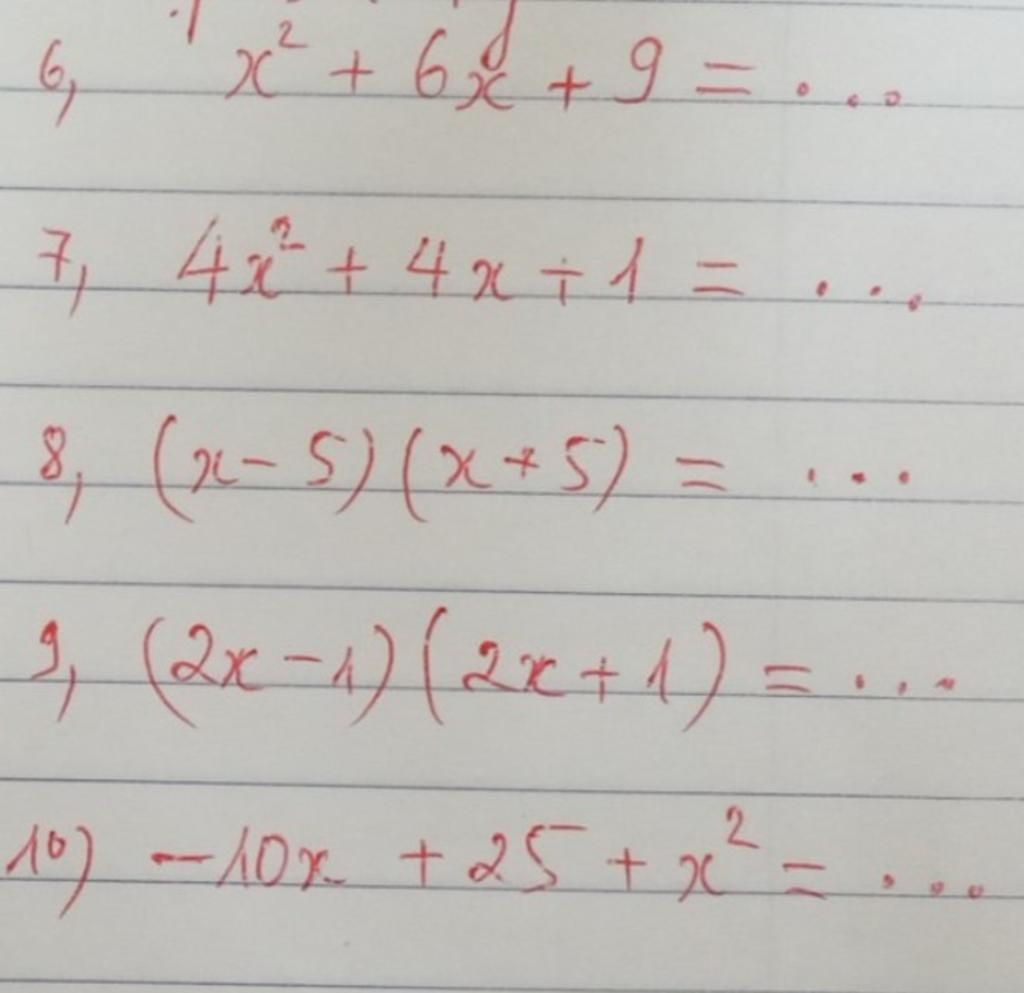 6, x² + 6x + 9 = ...
7, 4x² + 4x + 1 = ...
8, (x - 5)(x + 5) = ...
9, (2x - 1)(2x + 1) = ...
10) -10x + 25 + x² = ...